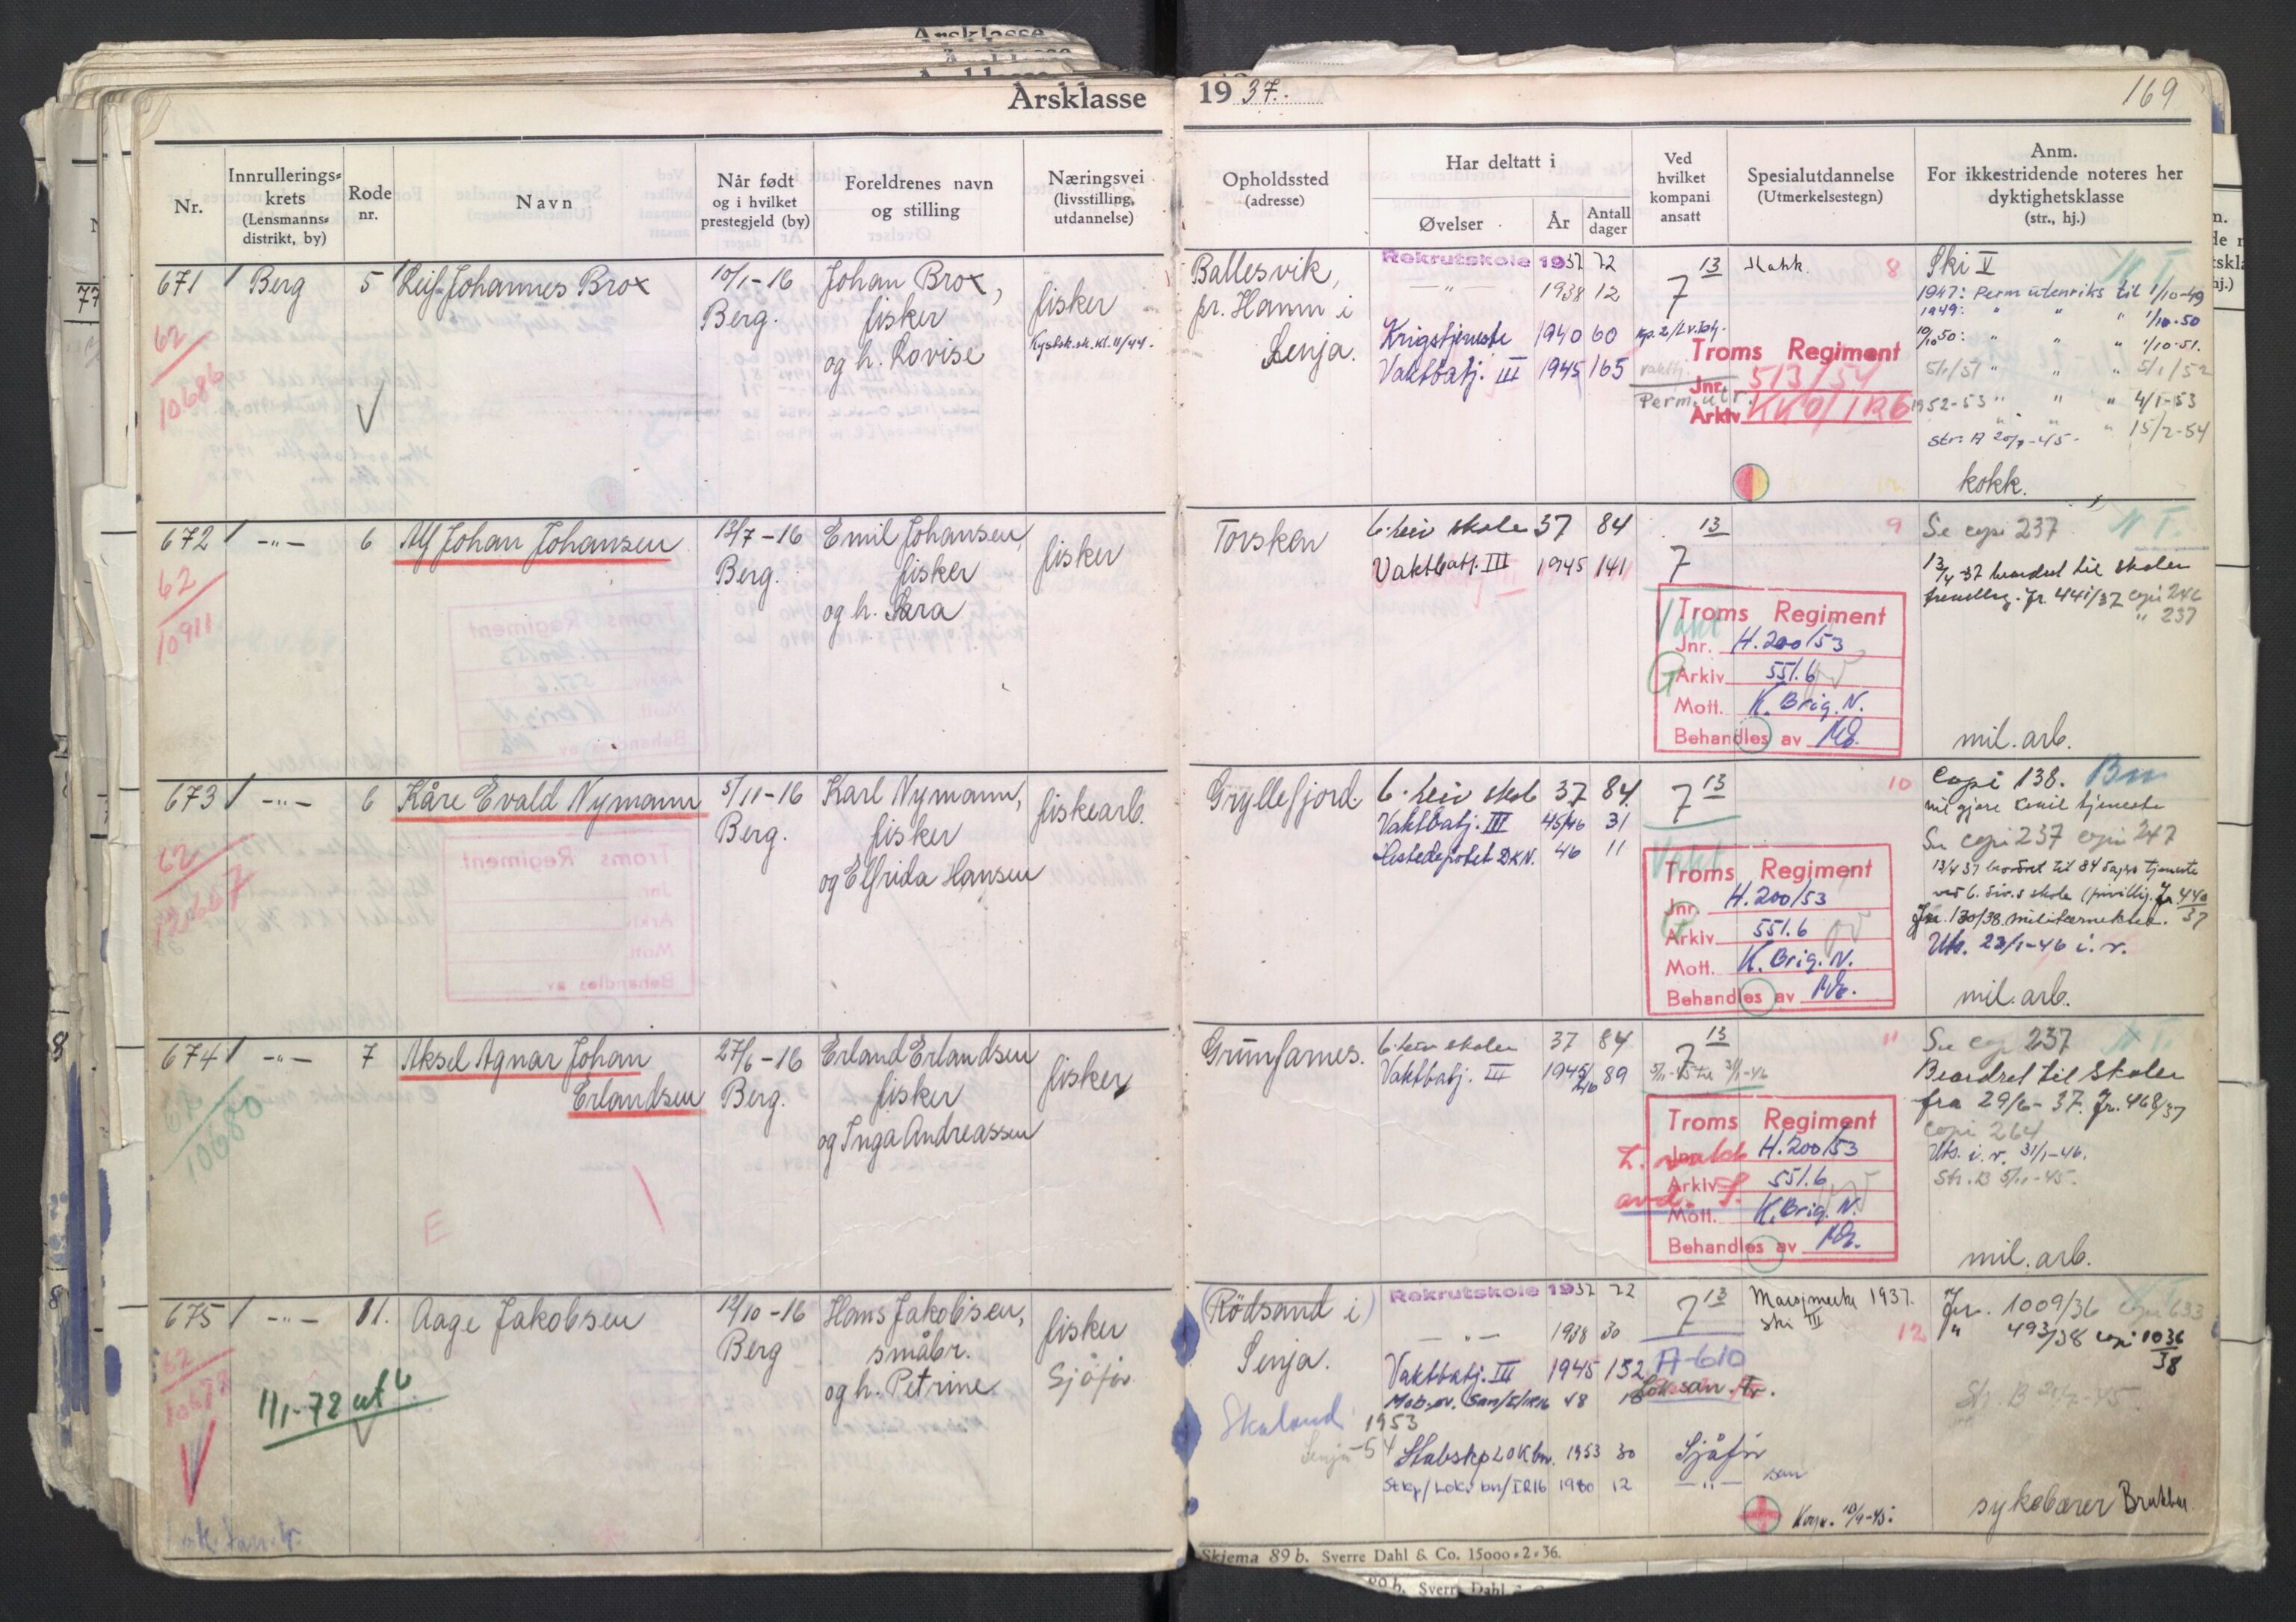 Årsklasse 1937. 169
Nr.
Innrullerings-
krets
(Lensmanns-
distrikt, by)
Rode
nr.
Navn
Når født
og i hvilket
prestegjeld (by)
Foreldrenes navn
og stilling
Næringsvei
(livsstilling,
utdannelse)
Opholdssted
(adresse)
Har deltatt i
Øvelser
År
Antall
dager
Ved
hvilket
kompani
ansatt
Spesialutdannelse
(Utmerkelsestegn)
Anm.
For ikkestridende noteres her
dyktighetsklasse
(str., hj.)
671 Berg 5 Leif Johannes Brox
62
10686
10/1-16
Berg.
Johan Brox,
fisker
og h. Lovise
fisker
Ballesvik,
pr. Hamn i
Senja.
Rekrutskole 1937 72
—"— 1938 12
Krigstjeneste 1940 60
Vaktbatj. III 1945 165
7 13
Perm. utr.
Troms Regiment
Jnr. 513/54
Arkiv KKO/IR6
8
Ski V
1947: Perm utenriks til 1/10-49
1949: " " " 1/10-50
10/10 50: " " " 1/10-51.
5/1/51 " " " 5/1/52
1952-53 " " " 4/1-53
" " " 15/2-54
Str. A 20/7-45-
kokk.
672 —"— 6 Alf Johan Johansen
62
10911
13/7-16
Berg.
Emil Johansen,
fisker
og h. Sara
fisker
Torsken
6. skole 37 84
Vaktbatj. III 1945 141
7 13
Vakt
Troms Regiment
Jnr. H.200/53
Arkiv 551.6
Mott. K. Brig. N.
Behandles av
9
Se copi 237 N T.
13/4 37 beordret til skolen
Jr. 441/37 copi 246
" 237
mil. arb.
673 —"— 6 Kåre Evald Nymann
62
5/11-16
Berg.
Karl Nymann,
fisker
og Elfrida Hansen
fiskearb.
Gryllefjord
6. skol 37 84.
Vaktbatj. III 45/46 31
Hestedepotet DKN. 46 11
7 13
Vakt
Troms Regiment
Jnr. H.200/53
Arkiv 551.6
Mott. K. Brig. N.
Behandles av
10
Copi 138.
tjeneste
Se copi 237 copi 247
13/4 37 beordret til 84 dagers tjeneste
ved 6. div.s skole (frivillig. Jr. 440/37
Jnr. 130/38 militærnekter.
Uts. 23/1-46 i. r.
mil. arb.
674 —"— 7 Aksel Agnar Johan
Erlandsen
10680
E
27/6-16
Berg.
Erland Erlandsen
fisker
og Inga Andreassen
fisker
Grunfarnes.
6. skolen 37 84
Vaktbatj. III 1945/46 89
7 13
5/11-45 til 31/1-46
Troms Regiment
Jnr. H.200/53
Arkiv 551.6
Mott. K. Brig. N.
Behandles av
11
Se copi 237 N T.
Beordret til Skolen
fra 29/6-37. Jr. 468/37
copi 264
Uts. i. r. 31/1-46.
Str. B 5/11-45.
mil. arb.
675 —"— 11. Aage Jakobsen
62
1/1-72 utg
12/10-16
Berg
Hans Jakobsen,
småbr.
og h. Petrine
fisker
Sjåfør
(Rödsand i)
Senja.
Skaland
Senja
Rekrutskole 1937 72
—"— 1938 30
Vaktbatj. III 1945 132
48
1953
-54
Stabskp LOK bn. 1953 30
12
7 13
A-610
Sjåfør
—"— san
Marsjmerke 1937.
Ski III
12
Jr. 1009/36 copi 633
" 493/38 copi 1036/38
sykebærer
Skjema 89 b. Sverre Dahl & Co. 15000-2-36.